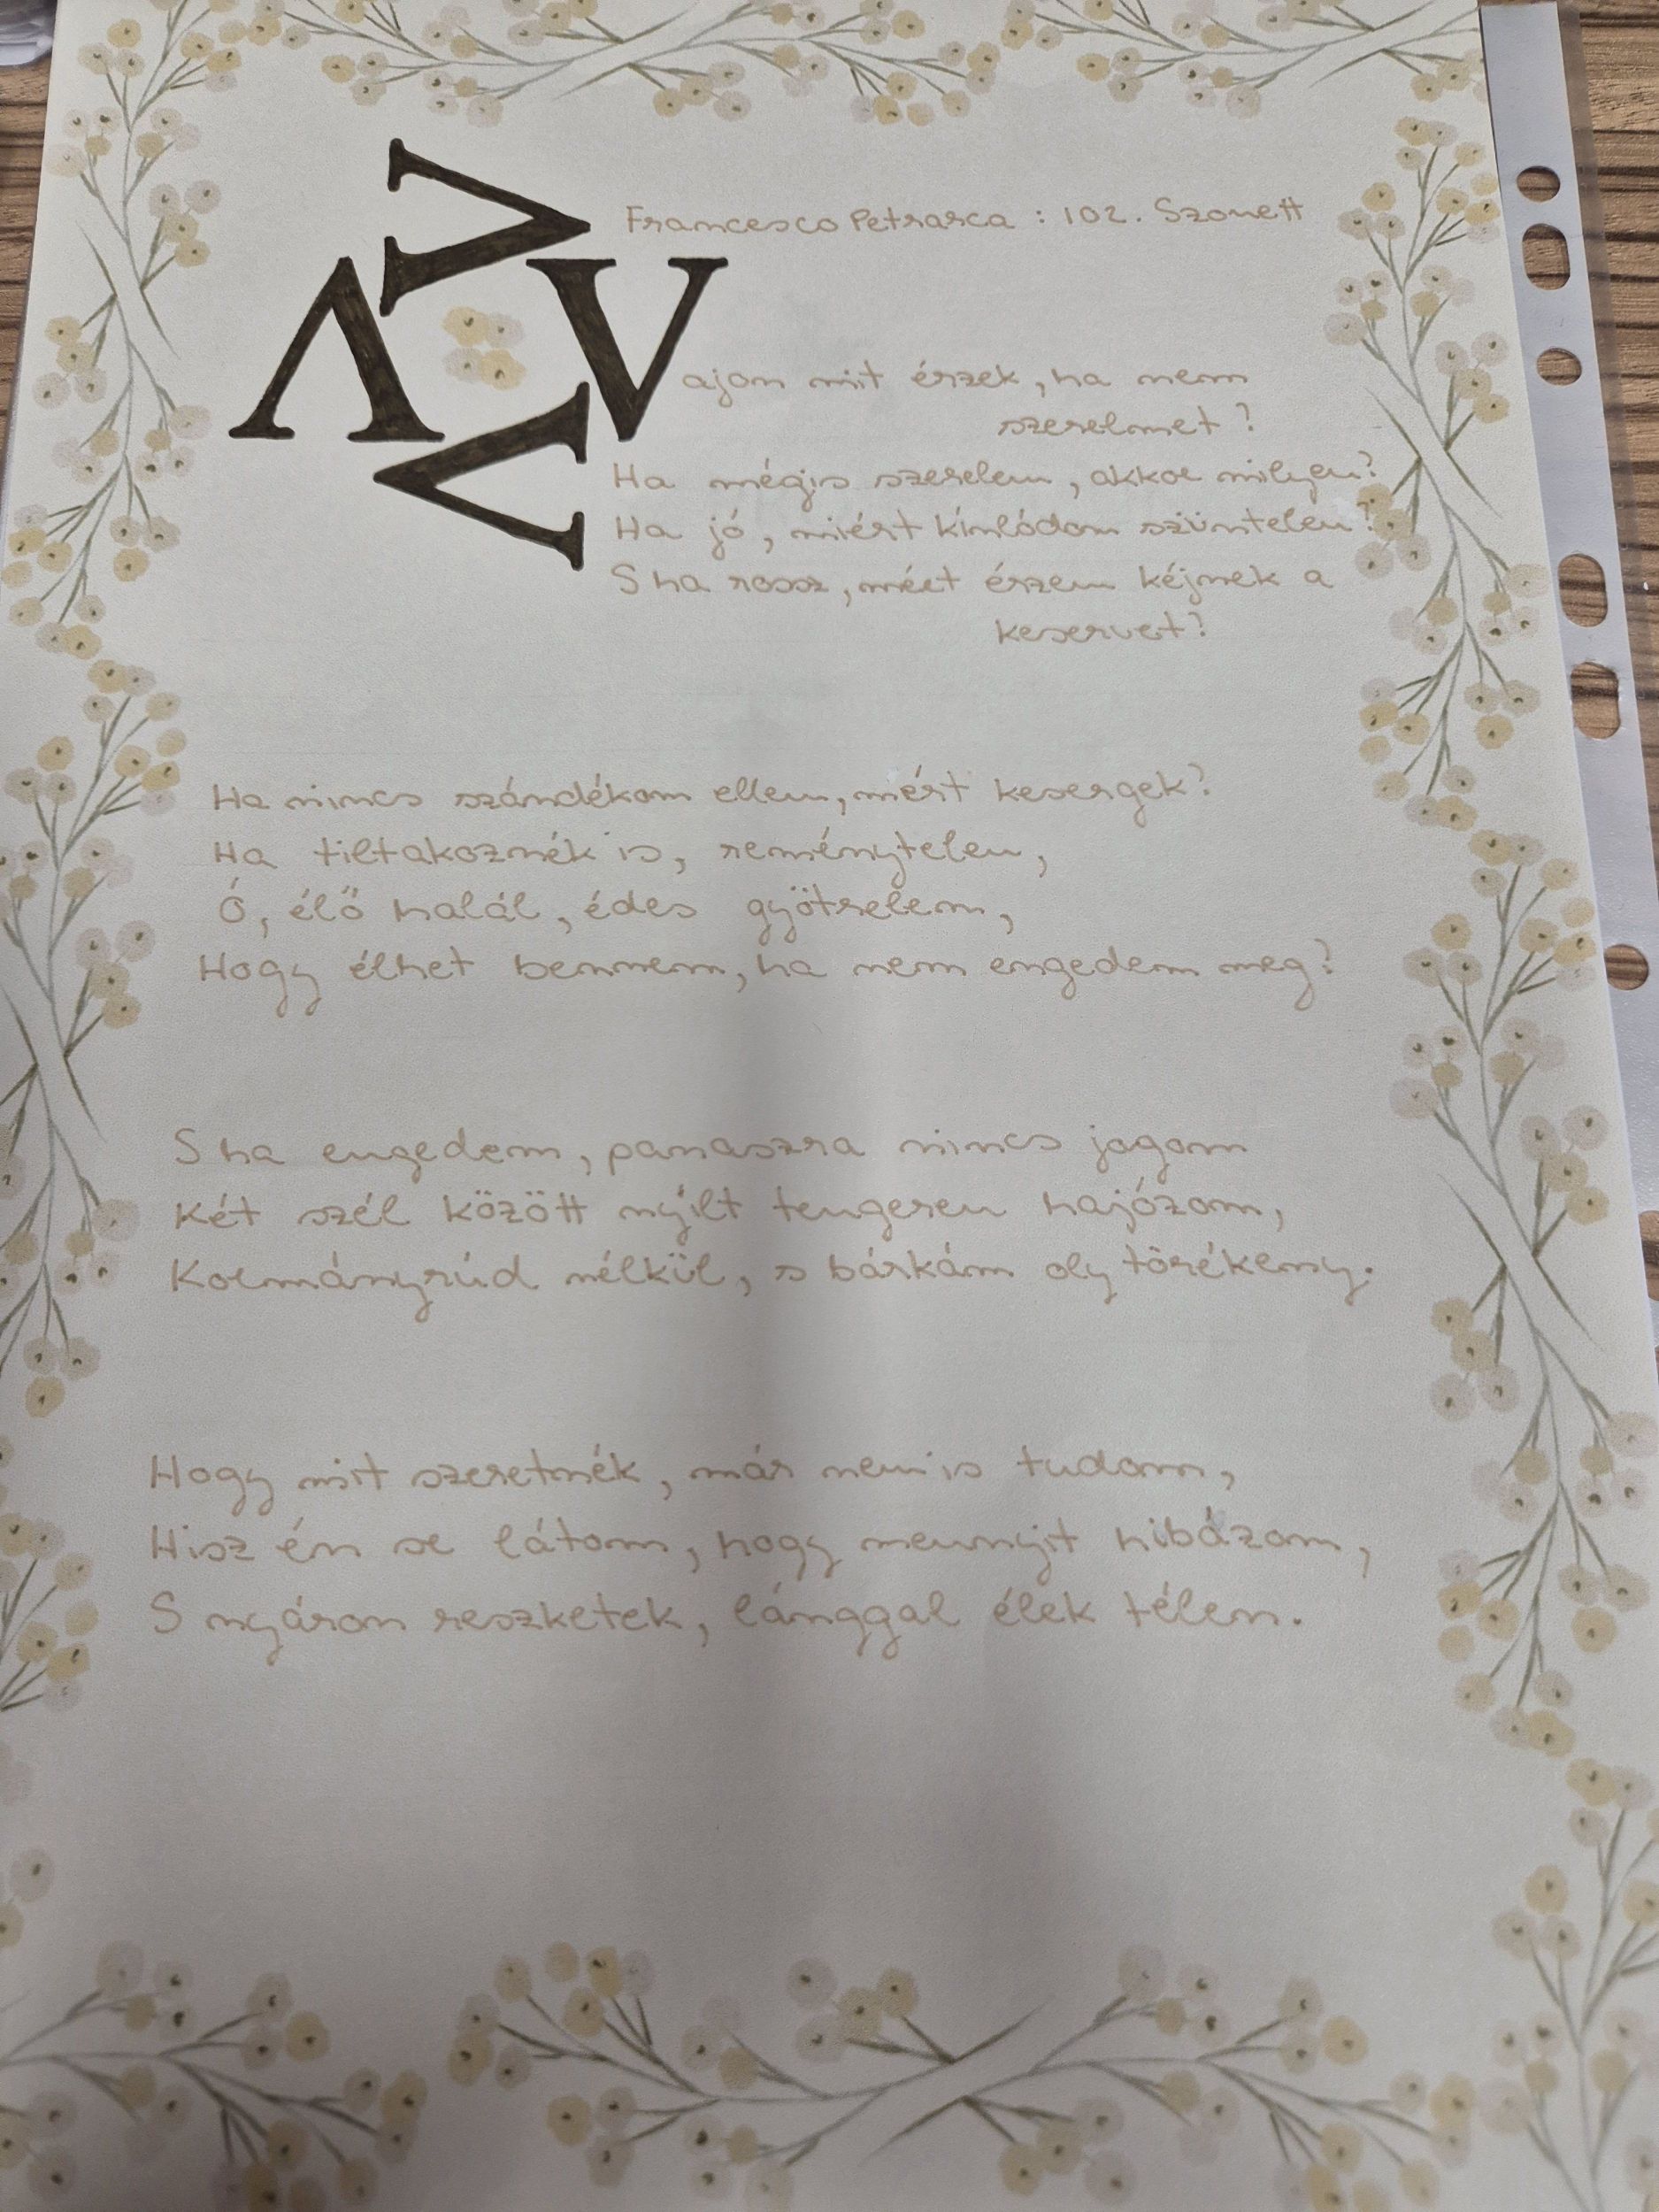 Francesco Petrarca : 102. Szonett
Vajon mit érzek, ha nem
szerelmet?
Ha mégis szerelem, akkor milyen?
Ha jó, miért kínlódom szüntelen?
S ha rossz, miért érzem kéjnek a
keservet?
Ha nincs szándékom ellen, miért kesergek?
Ha tiltakoznék is, reménytelen,
Ó, élő halál, édes gyötrelem,
Hogy élhet bennem, ha nem engedem meg?
S ha engedem, panaszra nincs jogom
Két szél között nyílt tengeren hajózom,
Kormányrúd nélkül, s bárkám oly törékeny.
Hogy mit szeretnék, már nem is tudom,
Hisz én se látom, hogy mennyit hibázom,
S nyáron reszketek, lánggal élek télen.